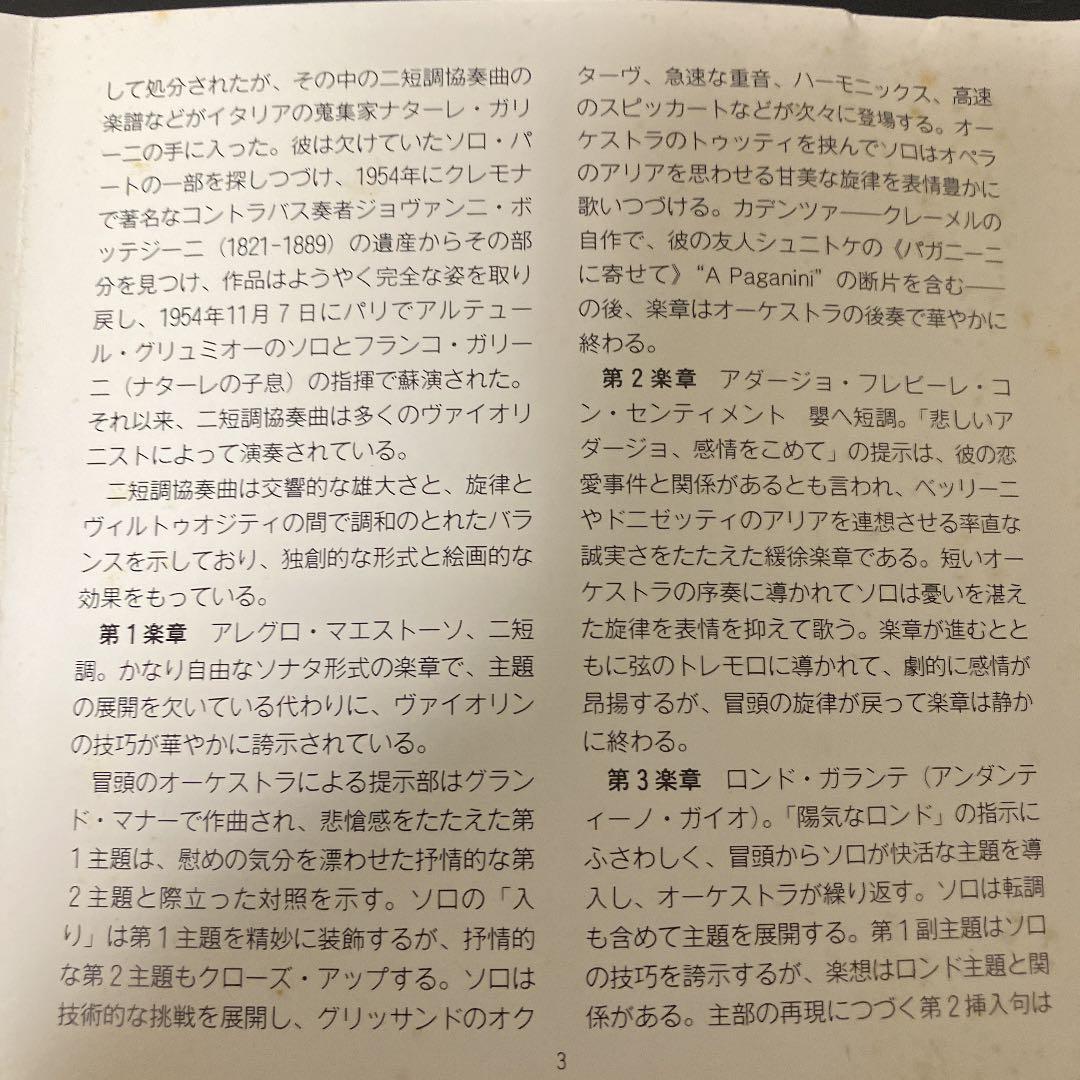 して処分されたが、その中の二短調協奏曲の
楽譜などがイタリアの蒐集家ナターレ・ガリ
ーニの手に入った。彼は欠けていたソロ・パ
ートの一部を探しつづけ、1954年にクレモナ
で著名なコントラバス奏者ジョヴァンニ・ボ
ッテジーニ（1821-1889）の遺産からその部
分を見つけ、作品はようやく完全な姿を取り
戻し、1954年11月7日にパリでアルテュー
ル・グリュミオーのソロとフランコ・ガリー
ニ（ナターレの子息）の指揮で蘇演された。
それ以来、二短調協奏曲は多くのヴァイオリ
ニストによって演奏されている。
二短調協奏曲は交響的な雄大さと、旋律と
ヴィルトゥオジティの間で調和のとれたバラ
ンスを示しており、独創的な形式と絵画的な
効果をもっている。
第1楽章　アレグロ・マエストーソ、二短
調。かなり自由なソナタ形式の楽章で、主題
の展開を欠いている代わりに、ヴァイオリン
の技巧が華やかに誇示されている。
冒頭のオーケストラによる提示部はグラン
ド・マナーで作曲され、悲愴感をたたえた第
1主題は、慰めの気分を漂わせた抒情的な第
2主題と際立った対照を示す。ソロの「入
り」は第1主題を精妙に装飾するが、抒情的
な第2主題もクローズ・アップする。ソロは
技術的な挑戦を展開し、グリッサンドのオク
ターヴ、急速な重音、ハーモニックス、高速
のスピッカートなどが次々に登場する。オー
ケストラのトゥッティを挟んでソロはオペラ
のアリアを思わせる甘美な旋律を表情豊かに
歌いつづける。カデンツァ——クレーメルの
自作で、彼の友人シュニトケの《パガニーニ
に寄せて》“A Paganini”の断片を含む——
の後、楽章はオーケストラの後奏で華やかに
終わる。
第2楽章　アダージョ・フレビーレ・コ
ン・センティメント　嬰ヘ短調。「悲しいア
ダージョ、感情をこめて」の提示は、彼の恋
愛事件と関係があるとも言われ、ベッリーニ
やドニゼッティのアリアを連想させる率直な
誠実さをたたえた緩徐楽章である。短いオー
ケストラの序奏に導かれてソロは憂いを湛え
た旋律を表情を抑えて歌う。楽章が進むとと
もに弦のトレモロに導かれて、劇的に感情が
昂揚するが、冒頭の旋律が戻って楽章は静か
に終わる。
第3楽章　ロンド・ガランテ（アンダンテ
ィーノ・ガイオ）。「陽気なロンド」の指示に
ふさわしく、冒頭からソロが快活な主題を導
入し、オーケストラが繰り返す。ソロは転調
も含めて主題を展開する。第1副主題はソロ
の技巧を誇示するが、楽想はロンド主題と関
係がある。主部の再現につづく第2挿入句は
3